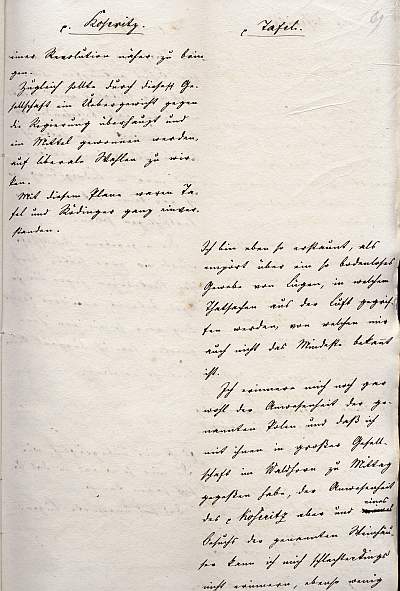 p. Koseritz.
einer Revolution näher zu brin-
gen.
Zugleich sollte durch diese Ge-
sellschaft ein Uebergewicht gegen
die Regierung überhaupt und
ein Mittel gewonnen werden,
auf liberale Wahlen zu wir-
ken.
Mit diesem Plane waren Ta-
fel und Rödinger ganz einver-
standen.
p. Tafel.
Ich bin eben so erstaunt, als
empört über ein so bodenloses
Gewebe von Lügen, in welchem
Thatsachen aus der Luft gegrif-
fen werden, von welchen mir
auch nicht das Mindeste bekannt
ist.
Ich erinnere mich noch gar
wohl der Anwesenheit der ge-
nannten Polen und daß ich
mit ihnen in großer Gesell-
schaft im Waldhorn zu Mittag
gegessen habe, der Anwesenheit
des p Koseritz aber und eines
Besuchs der genannten Weinhäu-
ser kann ich mich schlechterdings
nicht erinnern, ebenso wenig